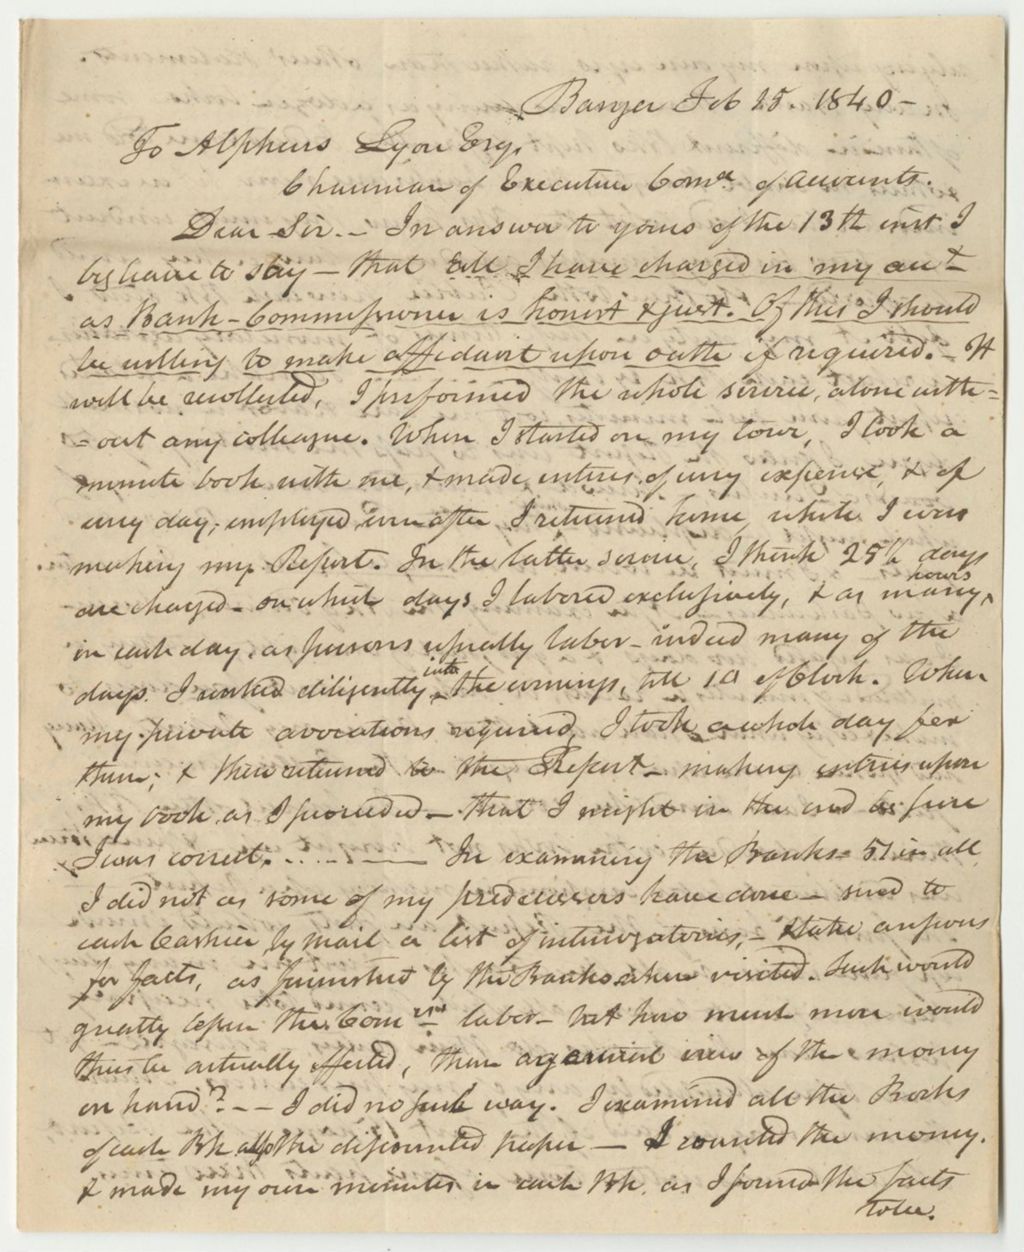 Bangor Feb 25. 1840 -
To Alpheus Lyon Esq.
Chairman of Executive Come. of Accounts.
Dear Sir. - In answer to yours of the 13th inst I
beg leave to say - that all I have charged in my acct
as Bank-Commissioner is honest & just. Of this I should
be willing to make affidavit upon oath if required. - It
will be recollected, I performed the whole service, alone with=
=out any colleague. When I started on my tour, I took a
minute book with me, & made entries of every expense, & of
every day, employed, even after I returned home, while I was
making my Report. In the latter service, I think 25 1/2 days
are charged - on which days I labored exclusively, & as many hours
in each day, as persons usually labor - indeed many of the
days I worked diligently into the evenings, till 10 of Clock. When
my private avocations required, I took a whole day for
them; & then returned to the Report - making entries upon
my book as I proceeded - that I might in the end be sure
I was correct. - In examining the Banks - 51 in all
I did not as some of my predecessors have done - send to
each Cashier by mail a list of interrogatories, - & take answers
for facts, as furnished by the Banks when visited. Such would
greatly lessen the Comrs labor - but how much more would
thus be actually effected, than a general view of the money
on hand? - - I did no such way. I examined all the Books
of each Bk also the discounted paper - I counted the money.
& made my own minutes in each Bk. as I found the facts
to be.